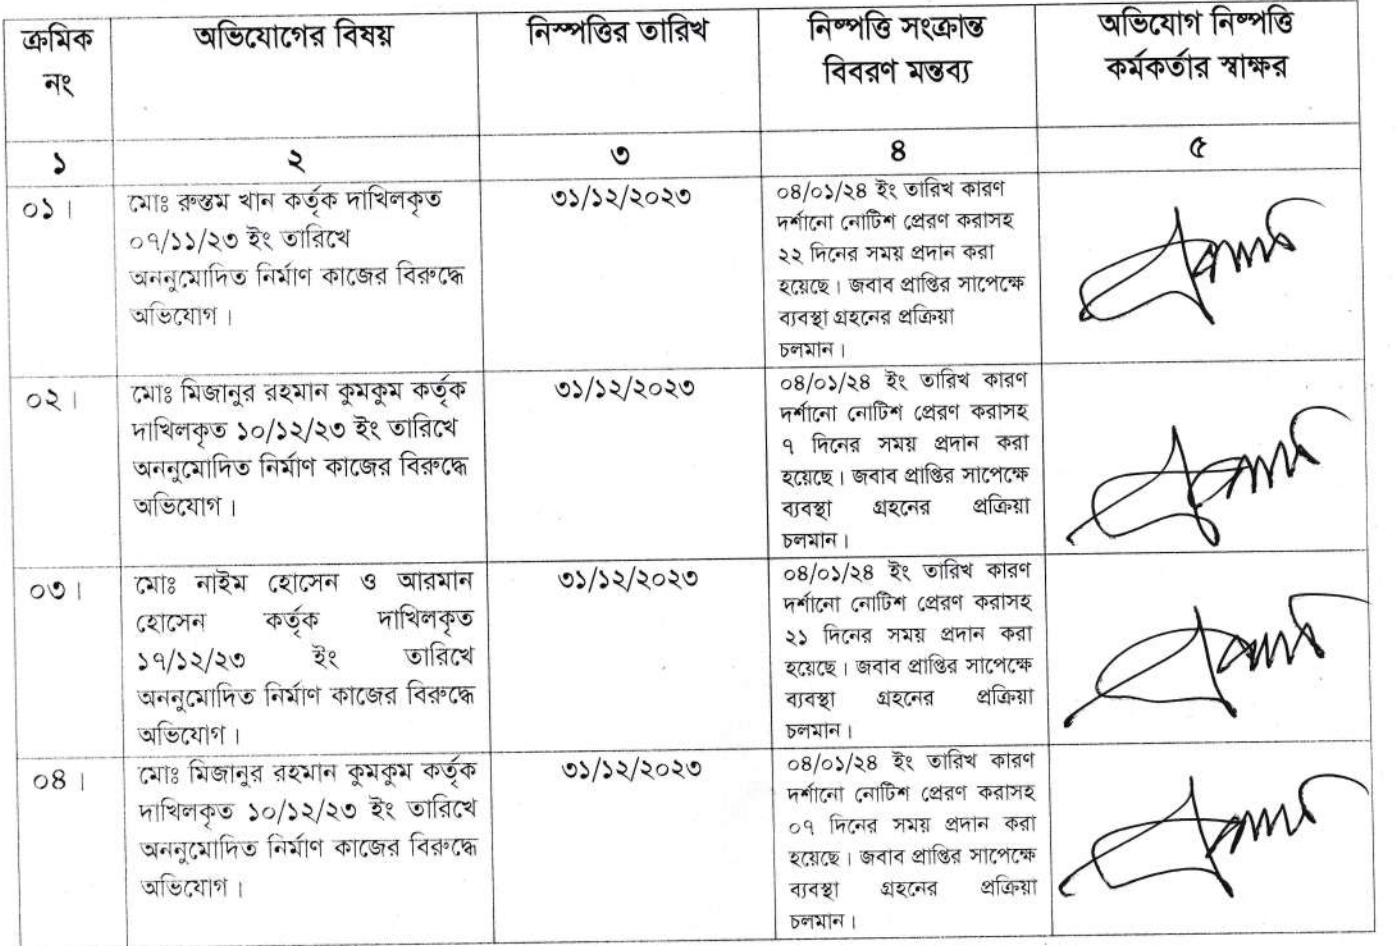 ক্রমিক নং
অভিযোগের বিষয়
নিস্পত্তির তারিখ
নিষ্পত্তি সংক্রান্ত
বিবরণ মন্তব্য
অভিযোগ নিষ্পত্তি
কর্মকর্তার স্বাক্ষর
১
২
৩
৪
৫
০১।
মোঃ রুস্তম খান কর্তৃক দাখিলকৃত
০৭/১১/২৩ ইং তারিখে
অননুমোদিত নির্মাণ কাজের বিরুদ্ধে
অভিযোগ।
৩১/১২/২০২৩
০৪/০১/২৪ ইং তারিখ কারণ
দর্শানো নোটিশ প্রেরণ করাসহ
২২ দিনের সময় প্রদান করা
হয়েছে। জবাব প্রাপ্তির সাপেক্ষে
ব্যবস্থা গ্রহনের প্রক্রিয়া
চলমান।
০২।
মোঃ মিজানুর রহমান কুমকুম কর্তৃক
দাখিলকৃত ১০/১২/২৩ ইং তারিখে
অননুমোদিত নির্মাণ কাজের বিরুদ্ধে
অভিযোগ।
৩১/১২/২০২৩
০৪/০১/২৪ ইং তারিখ কারণ
দর্শানো নোটিশ প্রেরণ করাসহ
৭ দিনের সময় প্রদান করা
হয়েছে। জবাব প্রাপ্তির সাপেক্ষে
ব্যবস্থা গ্রহনের প্রক্রিয়া
চলমান।
০৩।
মোঃ নাইম হোসেন ও আরমান
হোসেন কর্তৃক দাখিলকৃত
১৭/১২/২৩ ইং তারিখে
অননুমোদিত নির্মাণ কাজের বিরুদ্ধে
অভিযোগ।
৩১/১২/২০২৩
০৪/০১/২৪ ইং তারিখ কারণ
দর্শানো নোটিশ প্রেরণ করাসহ
২১ দিনের সময় প্রদান করা
হয়েছে। জবাব প্রাপ্তির সাপেক্ষে
ব্যবস্থা গ্রহনের প্রক্রিয়া
চলমান।
০৪।
মোঃ মিজানুর রহমান কুমকুম কর্তৃক
দাখিলকৃত ১০/১২/২৩ ইং তারিখে
অননুমোদিত নির্মাণ কাজের বিরুদ্ধে
অভিযোগ।
৩১/১২/২০২৩
০৪/০১/২৪ ইং তারিখ কারণ
দর্শানো নোটিশ প্রেরণ করাসহ
০৭ দিনের সময় প্রদান করা
হয়েছে। জবাব প্রাপ্তির সাপেক্ষে
ব্যবস্থা গ্রহনের প্রক্রিয়া
চলমান।